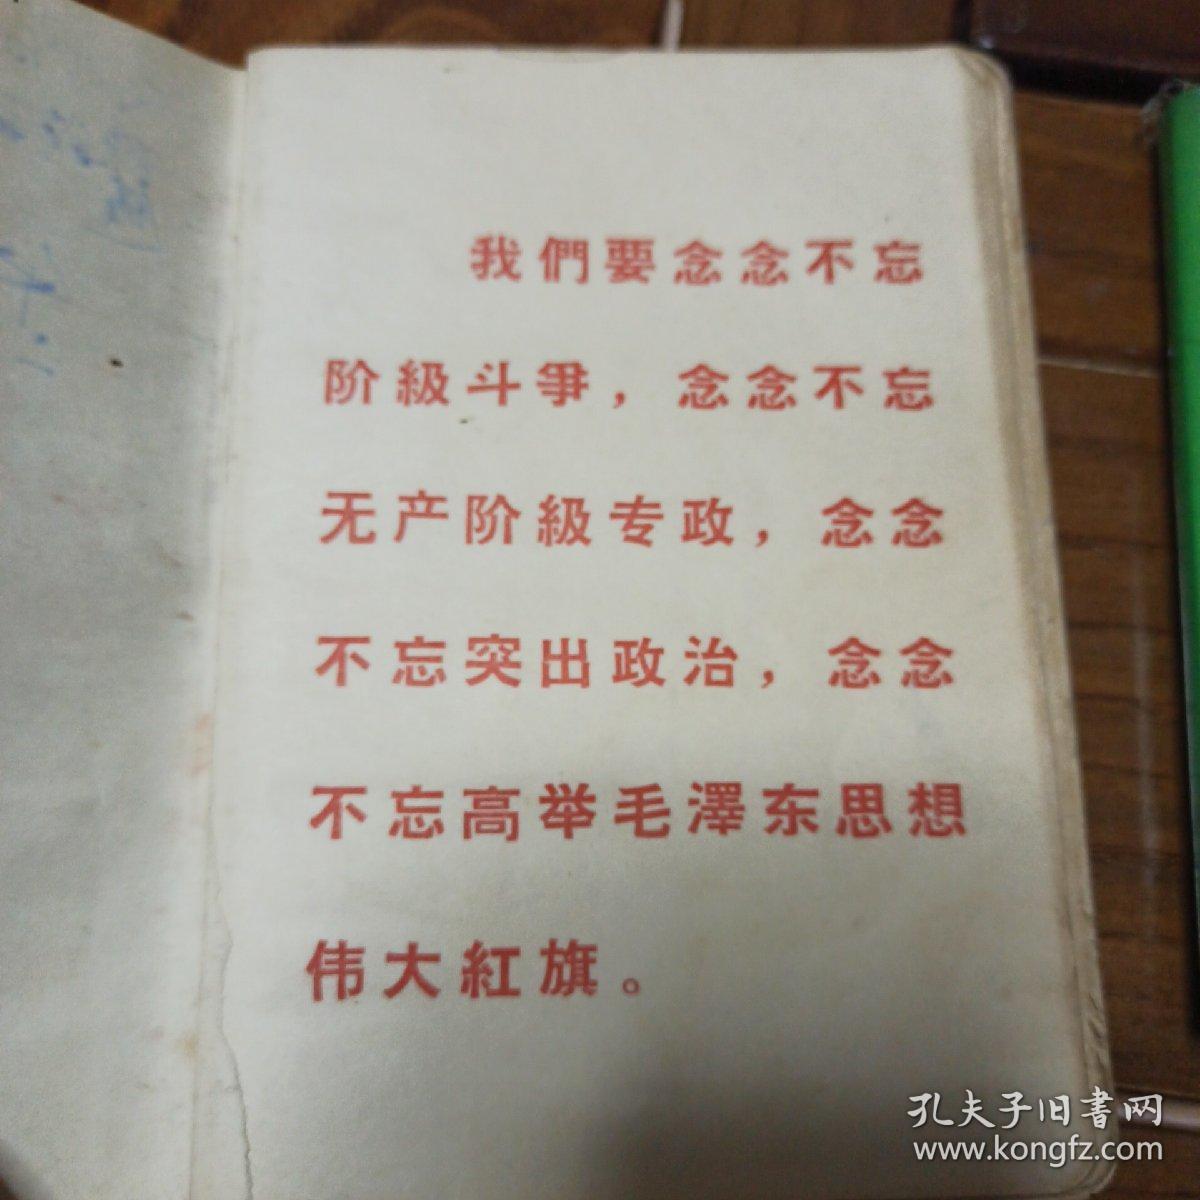 我們要念念不忘
阶級斗爭，念念不忘
无产阶級专政，念念
不忘突出政治，念念
不忘高举毛澤东思想
伟大紅旗。
孔夫子旧書网
www.kongfz.com